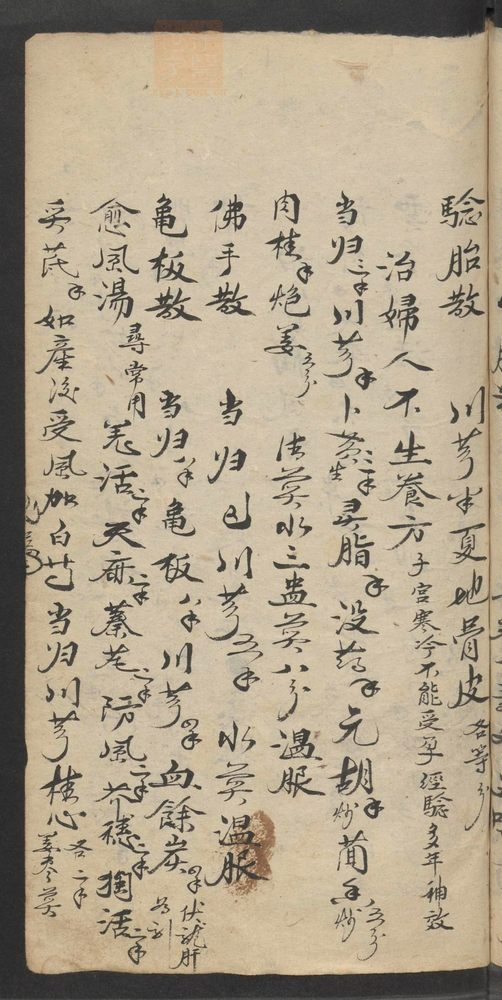 驗胎散 川芎半夏地骨皮各等分
治婦人不生養方 子宮寒冷不能受孕經驗多年神效
当归三钱川芎钱卜黄生二钱灵脂钱没药钱元胡钱炒茴香五分炒
肉桂钱炮姜五分 法煎水三盅煎八分温服
佛手散 当归 川芎五钱 水煎温服
亀板散 当归钱亀板八钱川芎四钱血餘炭四钱伏龍肝
愈风湯 尋常用 羌活二钱天麻二钱蔓荆二钱防风二钱芥穗二钱獨活二钱
黄芪钱如産後受风加白芍当归川芎桂心各二钱姜枣煎